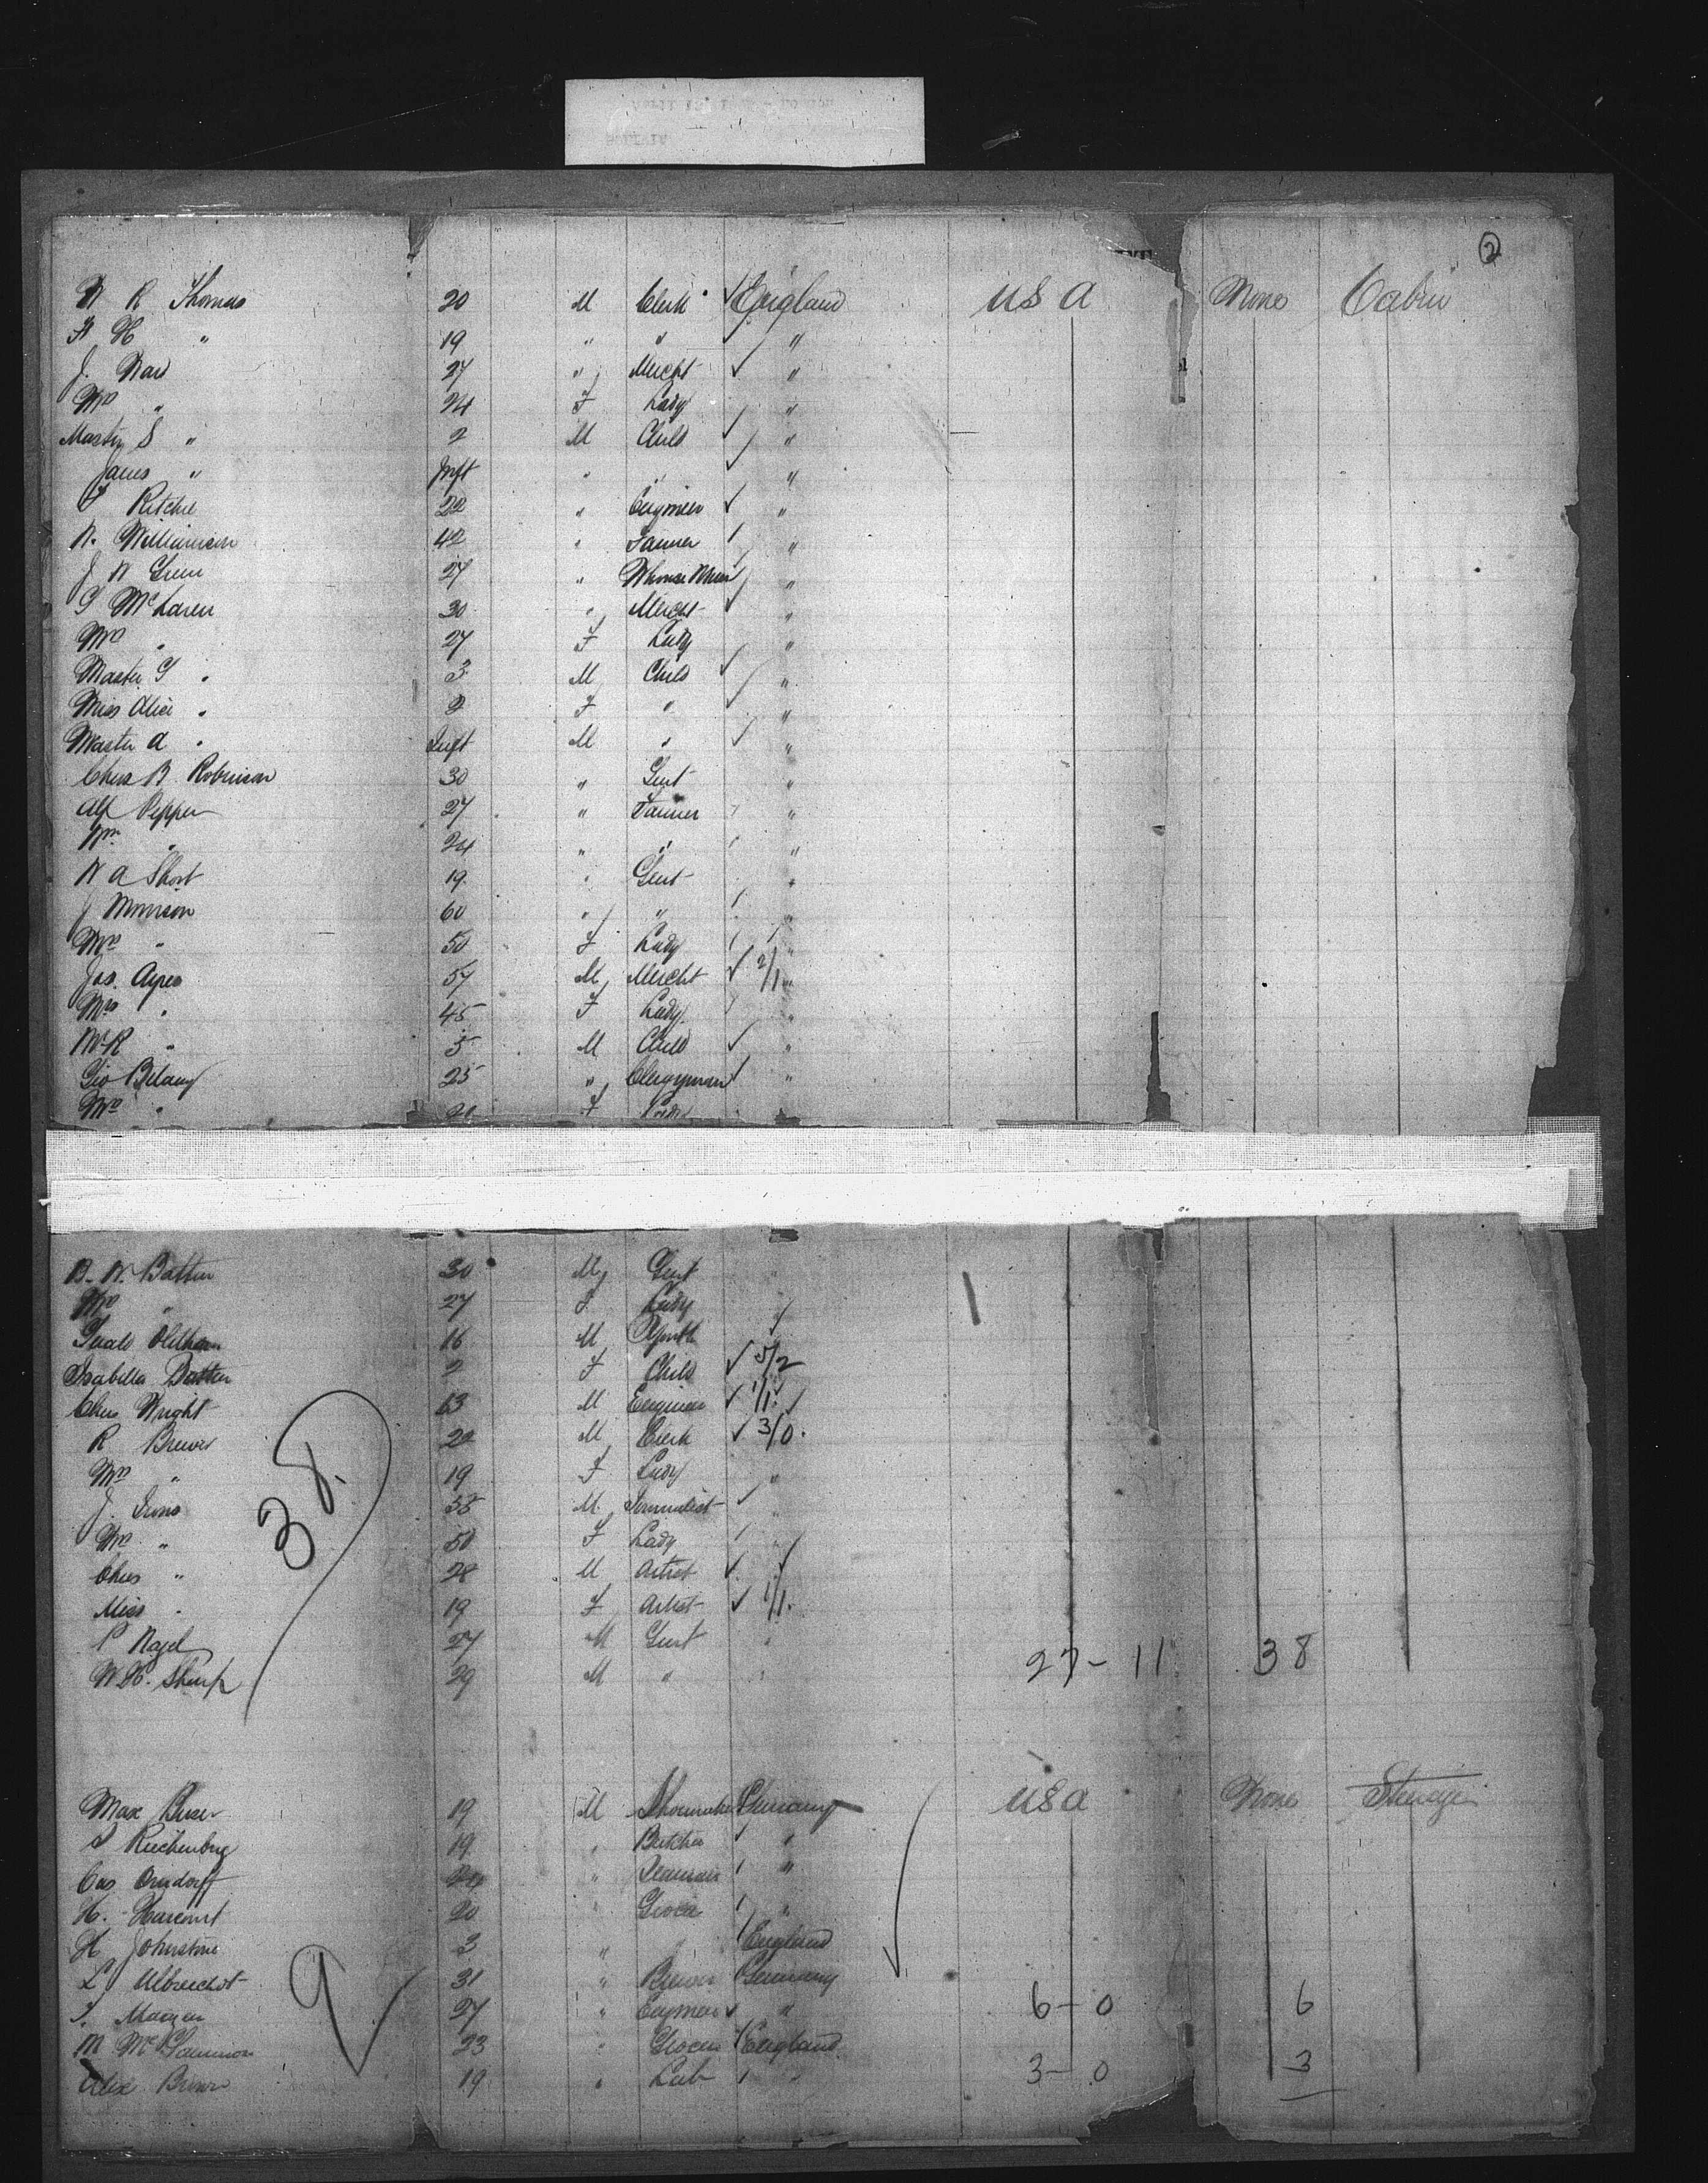 2
W R Thomas 20 M Clerk England USA None Cabin
F H " 19 " " "
J. 27 " Mercht "
Mrs " 24 F Lady "
Master S " 2 M Child "
James " Inft " " "
Ritchie 22 " Engineer "
W. Williamson 42 " Farmer "
J W Green 27 " "
G McLaren 30 " Mercht "
Mrs " 27 F Lady "
Master G " 3 M Child "
Miss Alice " 2 F " "
Master A " Inft M " "
Chas B Robinson 30 " Gent "
Alf Pepper 27 " Farmer "
Wm " 24 " " "
W A Short 19 " Gent "
J Morrison 60 " " "
Mrs " 50 F Lady "
Jas. Ayres 57 M Mercht 2/1 "
Mrs " 45 F Lady "
" 5 M Child "
Geo Belamy 25 " Clergyman "
Mrs " F Lady
B. W. Batten 30 M Gent
Mrs " 27 F Lady
Oldham 16 M Youth
Isabella Batten 2 F Child 5/2
Chas Wright 63 M Engineer 1/1
R Brewer M Clerk 3/0
Mrs " 19 F Lady "
J. 58 M Journalist
Mrs " 50 F Lady
Chas " 28 M Artist
Miss " 19 F Artist 1/1
38
P Nagel 27 M Gent 27-11 38
W. H. Sharp 29 M "
Max 19 M Shoemaker Germany USA None Steerage
19 " Butcher "
Cas " "
H. Harcourt 20 " Grocer "
H Johnstone 3 " " England
L Albrecht 31 " Brewer Germany
9
27 " Engineer " 6-0 6
M 23 " Grocer England
Alex 19 " Lab " 3-0 3